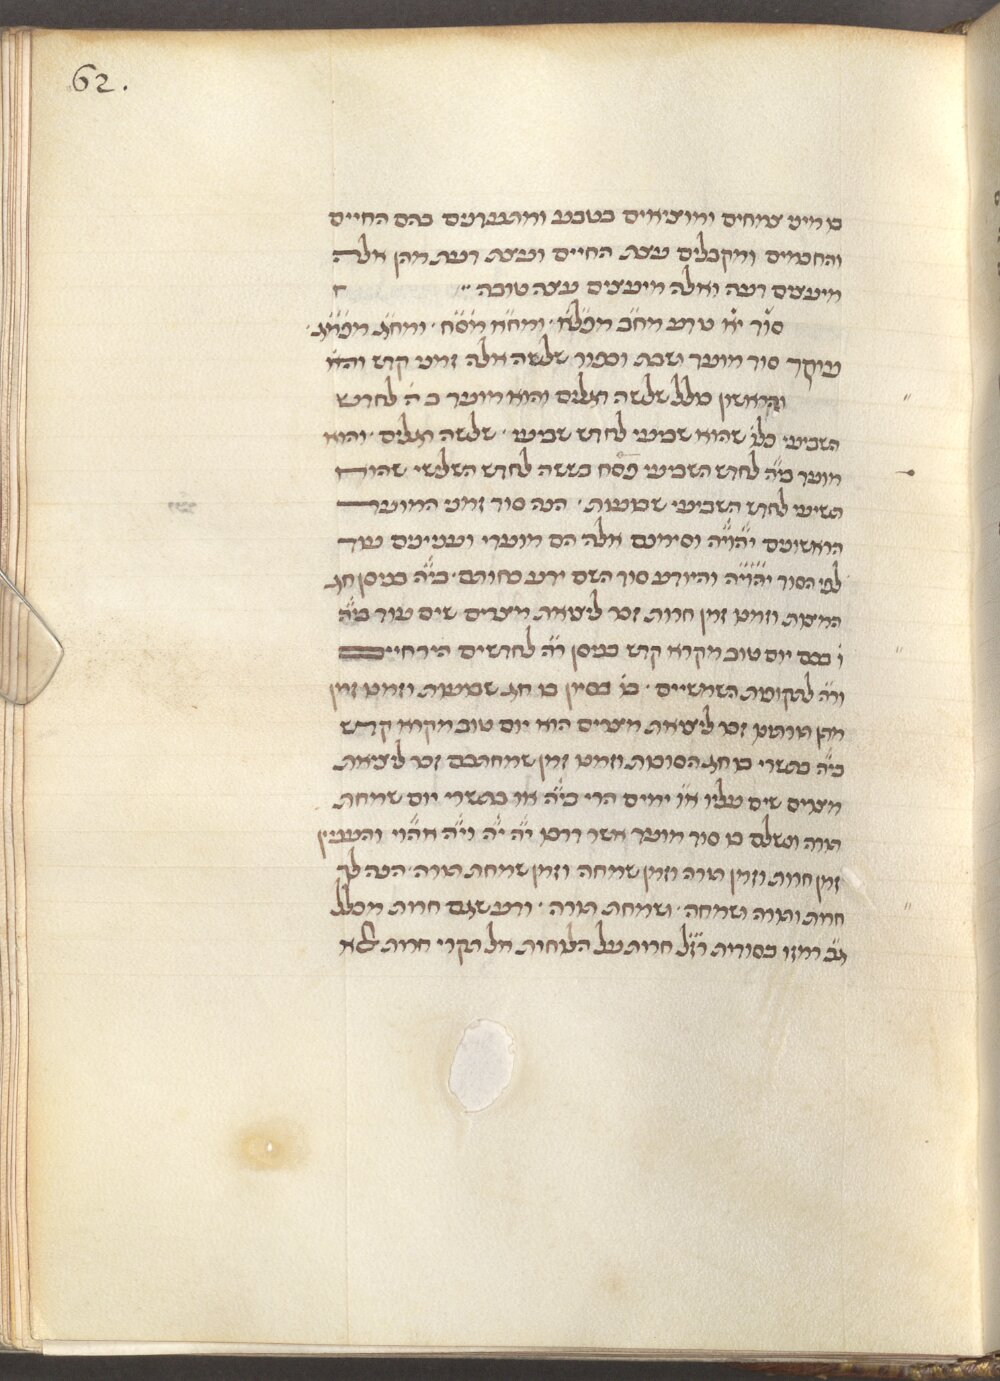 62.
בו מינו צומחים ומוציאים בטבע ומתגברים בהם החיים
והחטאים ומקבלים עצת החיים ועצת רעת מהן אלה
מיעצים רעה ואלה מיעצים עצה טובה
סוד יא טרע
עיקר סוד מועד ושבת וכפור שלשה אלה זמני קדש והא
והראשון כולל שלשה רגלים והוא מועד ב ה לחדש
השביעי כלו שהוא שביעי לחדש שביעי שלשה רגלים והוא
מועד ט״ו לחדש השביעי פסח בששה לחדש השלישי שהוא
תשיעי לחדש השביעי שבועות הנה סוד זמני המועד
הראשונים יהו״ה וסימנם אלה הם מועדי ועניינם עוד
לפי הסוד יהו״ה והיודע סוד השם ידע כחותם ט״ו בניסן חג
המצות וזמנו זמן חרות זכר ליציאת מצרים שיש עוד
בכם יום טוב מקרא קדש בניסן ר״ה לחדשים הירחיים
ור״ה לתקופת השמשיים בו בסיון בו חג שבועות וזמנו זמן
מתן תורתנו זכר ליציאת מצרים הוא יום טוב מקרא קדש
ט״ו בתשרי בו חג הסוכות וזמנו זמן שמחתכם זכר ליציאת
מצרים שיש עליו ימים הרי בתשרי יום שמחת
תורה ונשלם בו סוד מועד אשר דרכו י״ה י״ה ו״יה אהוי והענין
זמן חרות וזמן תורה וזמן שמחה וזמן שמחת תורה הנה לך
חרות ותורה ושמחה ושמחת תורה ודע שגם חרות מכלל
ג״כ רמזו בסודות רז״ל חרות על הלוחות אל תקרי חרות אלא